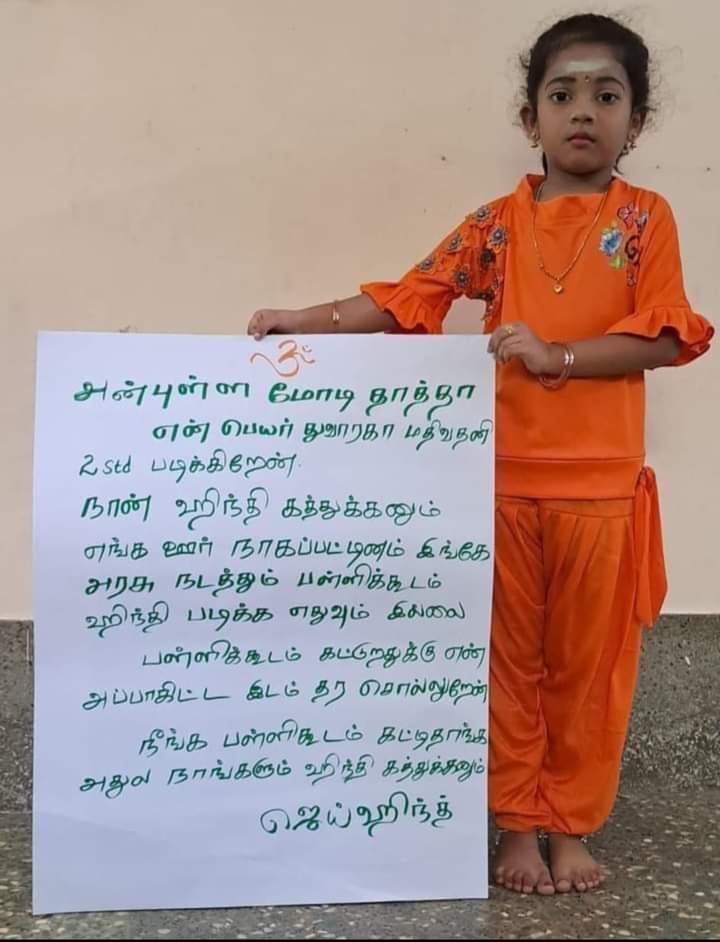 ॐ
அன்புள்ள மோடி தாத்தா
என் பெயர் துவாரகா மதிவதனி
2 std படிக்கிறேன்.
நான் ஹிந்தி கத்துக்கனும்
எங்க ஊர் நாகப்பட்டினம் இங்கே
அரசு நடத்தும் பள்ளிக்கூடம்
ஹிந்தி படிக்க எதுவும் இல்லை
பள்ளிக்கூடம் கட்டுறதுக்கு என்
அப்பாகிட்ட இடம் தர சொல்லுறேன்
நீங்க பள்ளிகூடம் கட்டிதாங்க
அதுல நாங்களும் ஹிந்தி கத்துக்கனும்
ஜெய்ஹிந்த்